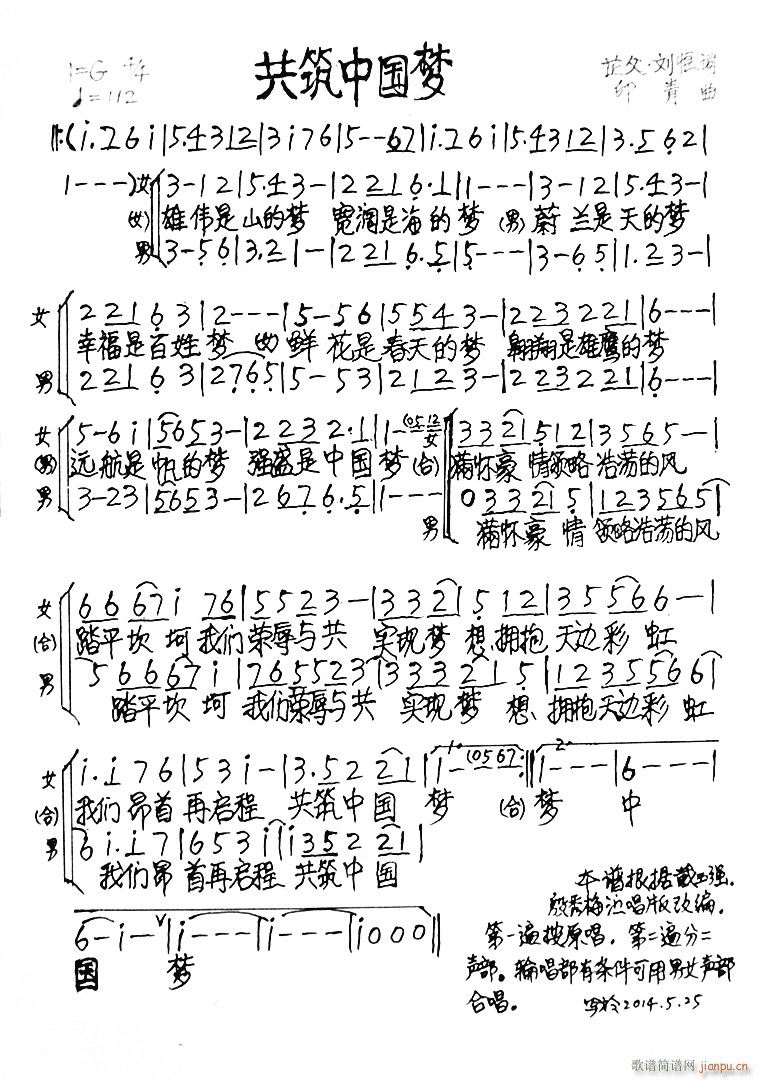 共筑中国梦
1=G 4/4
♩=112
芷父·刘恒词
印青 曲
‖:(i.7 6 i|5.4 3 1 2|3 i 7 6|5--6 7|i.7 6 i|5.4 3 1 2|3.5 6 2|
1---)女 3-1 2|5.4 3-|2 2 1 6.1|1---|3-1 2|5.4 3-|
(女) 雄伟是山的梦 宽阔是海的梦 (男) 蔚兰是天的梦
男 3-5 6|3.2 1-|2 2 1 6.5|5---|3-6 5|1.2 3-|
女 2 2 1 6 3|2---|5-5 6|5 5 4 3-|2 2 3 2 2 1|6---|
幸福是百姓梦 (女) 鲜花是春天的梦 翱翔是雄鹰的梦
男 2 2 1 6 3|2 7 6 5|5-5 3|2 1 2 3-|2 2 3 2 2 1|6---|
女 5-6 i|5 6 5 3-|2 2 3 2.1|1-(0 5 1 2 女 3 3 2 1 5 1 2|3 5 6 5--|
(男) 远航是帆的梦 强盛是中国梦 (合) 满怀豪情领略浩荡的风
男 3-2 3|5 6 5 3-|2 6 7 6.5|1---| 男 0 3 3 2 1 5|1 2 3 5 6 5|
满怀豪情领略浩荡的风
女 6 6 6 7 i 7 6|5 5 2 3-|3 3 2 5 1 2|3 5 5 6 6--|
(合) 踏平坎坷我们荣辱与共 实现梦想、拥抱天边彩虹
男 5 6 6 6 7 i|7 6 5 5 2 3|3 3 3 2 1 5|1 2 3 5 5 6 6|
踏平坎坷 我们荣辱与共 实现梦想、拥抱天边彩虹
女 i.i 7 6|5 3 i-|3.5 2 2 1|1. i--(0 5 6 7:‖2. i---|6---|
(合) 我们昂首再启程 共筑中国梦 (合) 梦 中
男 6 i.i 7|6 5 3 i|i 3 5 2 2 1|
我们昂首再启程 共筑中国
6-i-∨|i---|i---|i 0 0 0‖
国 梦
本谱根据戴玉强、
殷秀梅泣唱版改编。
第一遍按原唱，第二遍分二
声部。轮唱都有条件可用男女声部
合唱。 写於2014.5.25
歌谱简谱网
jianpu.cn